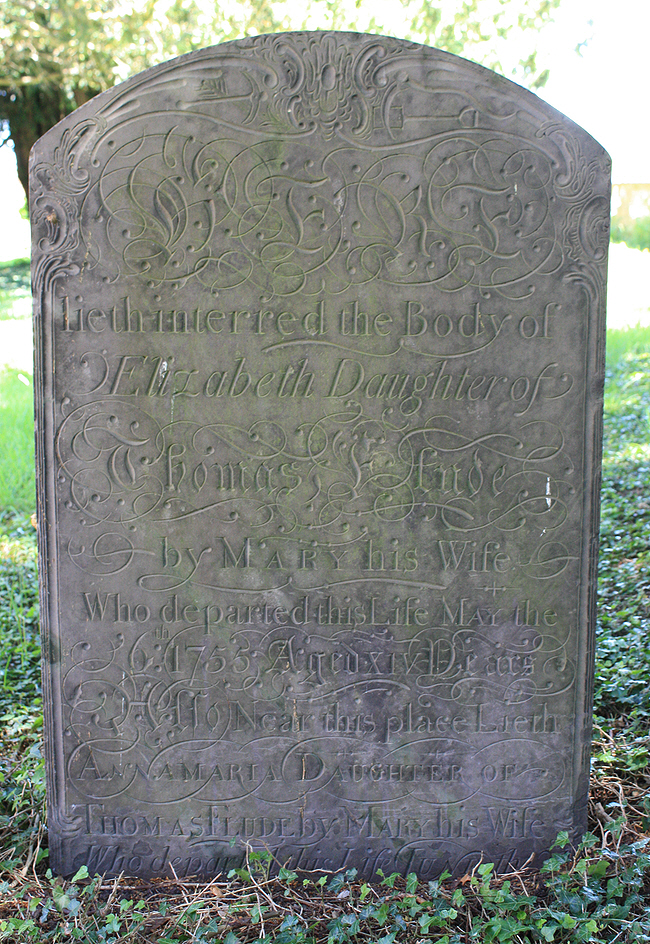 HERE
lieth interred the Body of
Elizabeth Daughter of
Thomas Flude
by MARY his Wife
Who departed this Life MAY the
6th 1755 Aged xiv Years
Also Near this place Lieth
ANNAMARIA DAUGHTER OF
THOMAS FLUDE by MARY his Wife
Who departed this Life